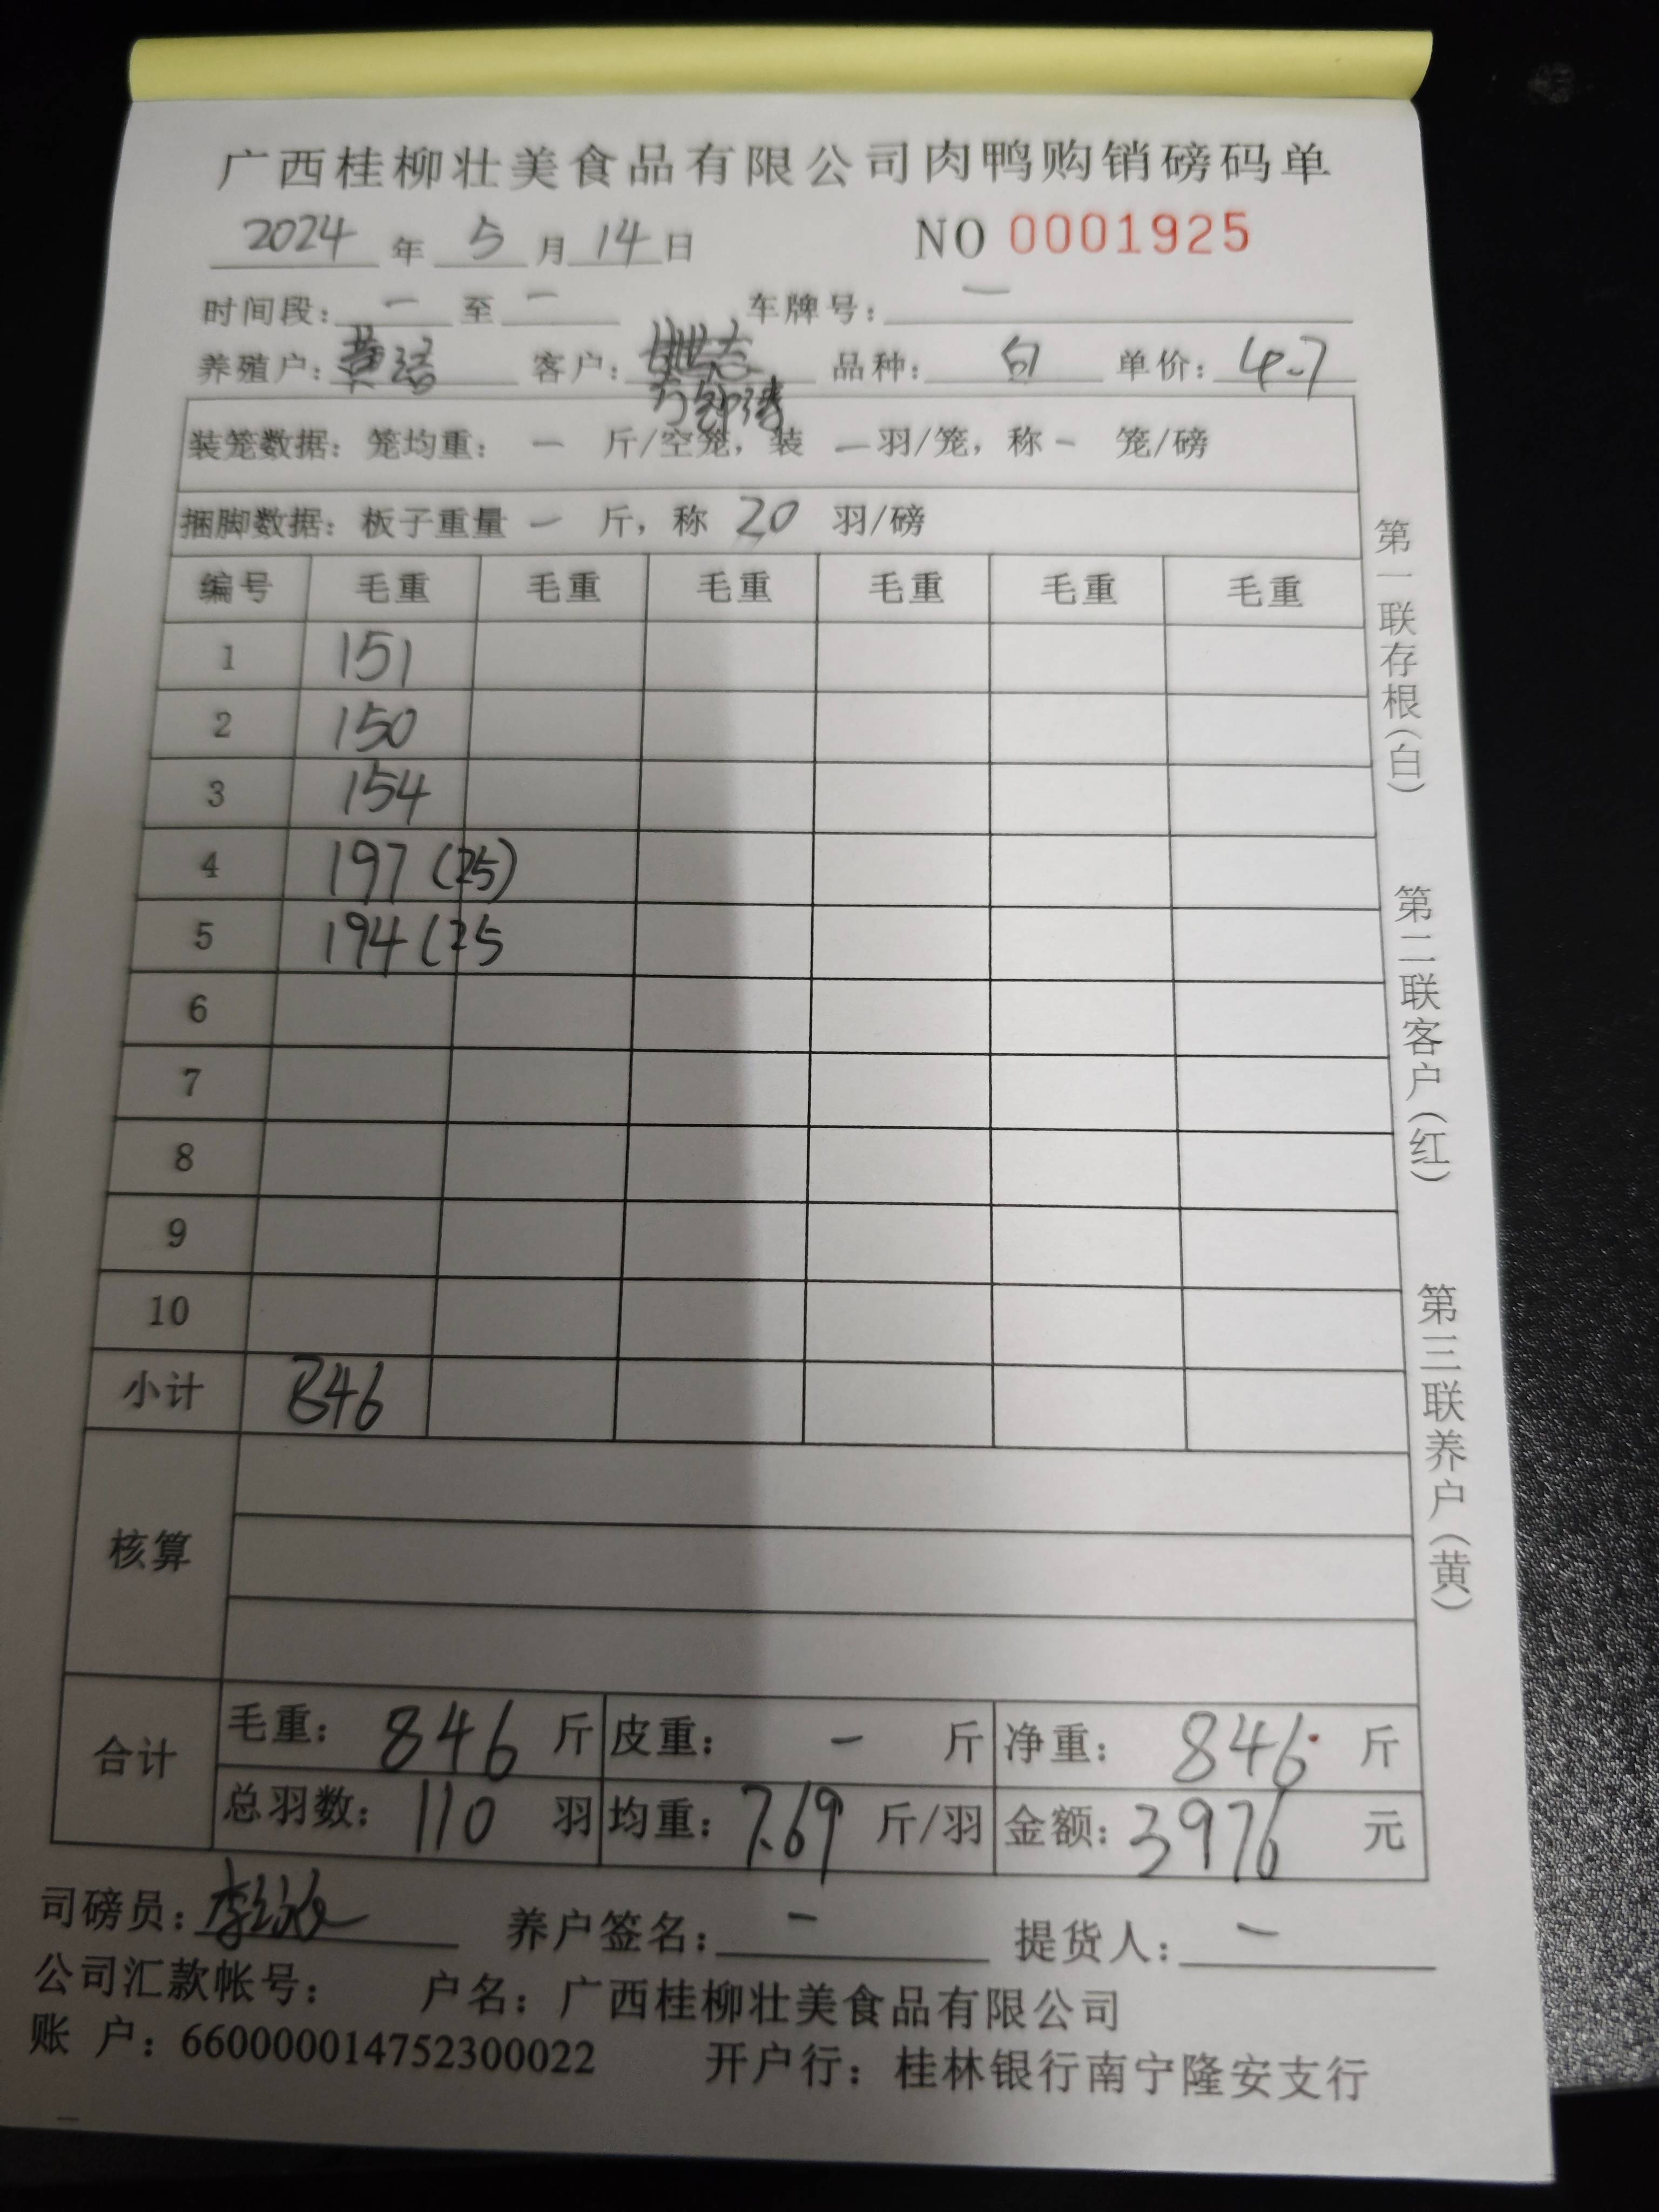 广西桂柳壮美食品有限公司肉鸭购销磅码单
2024 年 5 月 14 日 NO 0001925
时间段: 一 至 一 车牌号: 一
养殖户: 客户: 品种: 白 单价: 4.7
装笼数据: 笼均重: 一 斤/空笼, 装 一 羽/笼, 称 - 笼/磅
捆脚数据: 板子重量 一 斤, 称 20 羽/磅
编号 毛重 毛重 毛重 毛重 毛重 毛重
1 151
2 150
3 154
4 197 (25)
5 194 (25
6
7
8
9
10
小计 846
核算
合计 毛重: 846 斤 皮重: 一 斤 净重: 846 斤
总羽数: 110 羽 均重: 7.69 斤/羽 金额: 3976 元
司磅员: 养户签名: 一 提货人: 一
公司汇款帐号: 户名: 广西桂柳壮美食品有限公司
账 户: 660000014752300022 开户行: 桂林银行南宁隆安支行
第一联存根(白)
第二联客户(红)
第三联养户(黄)